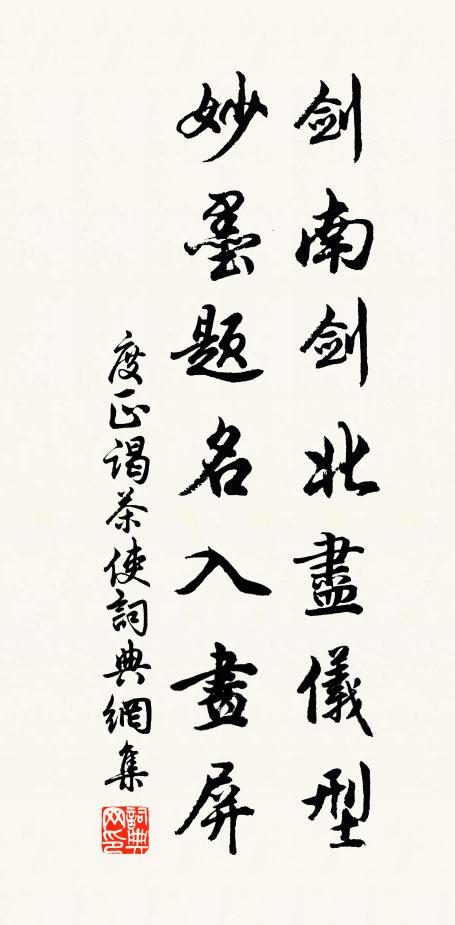 劍南劍北盡儀型
妙墨題名入畫屏
度正謁茶使詞典網集
詞典网印